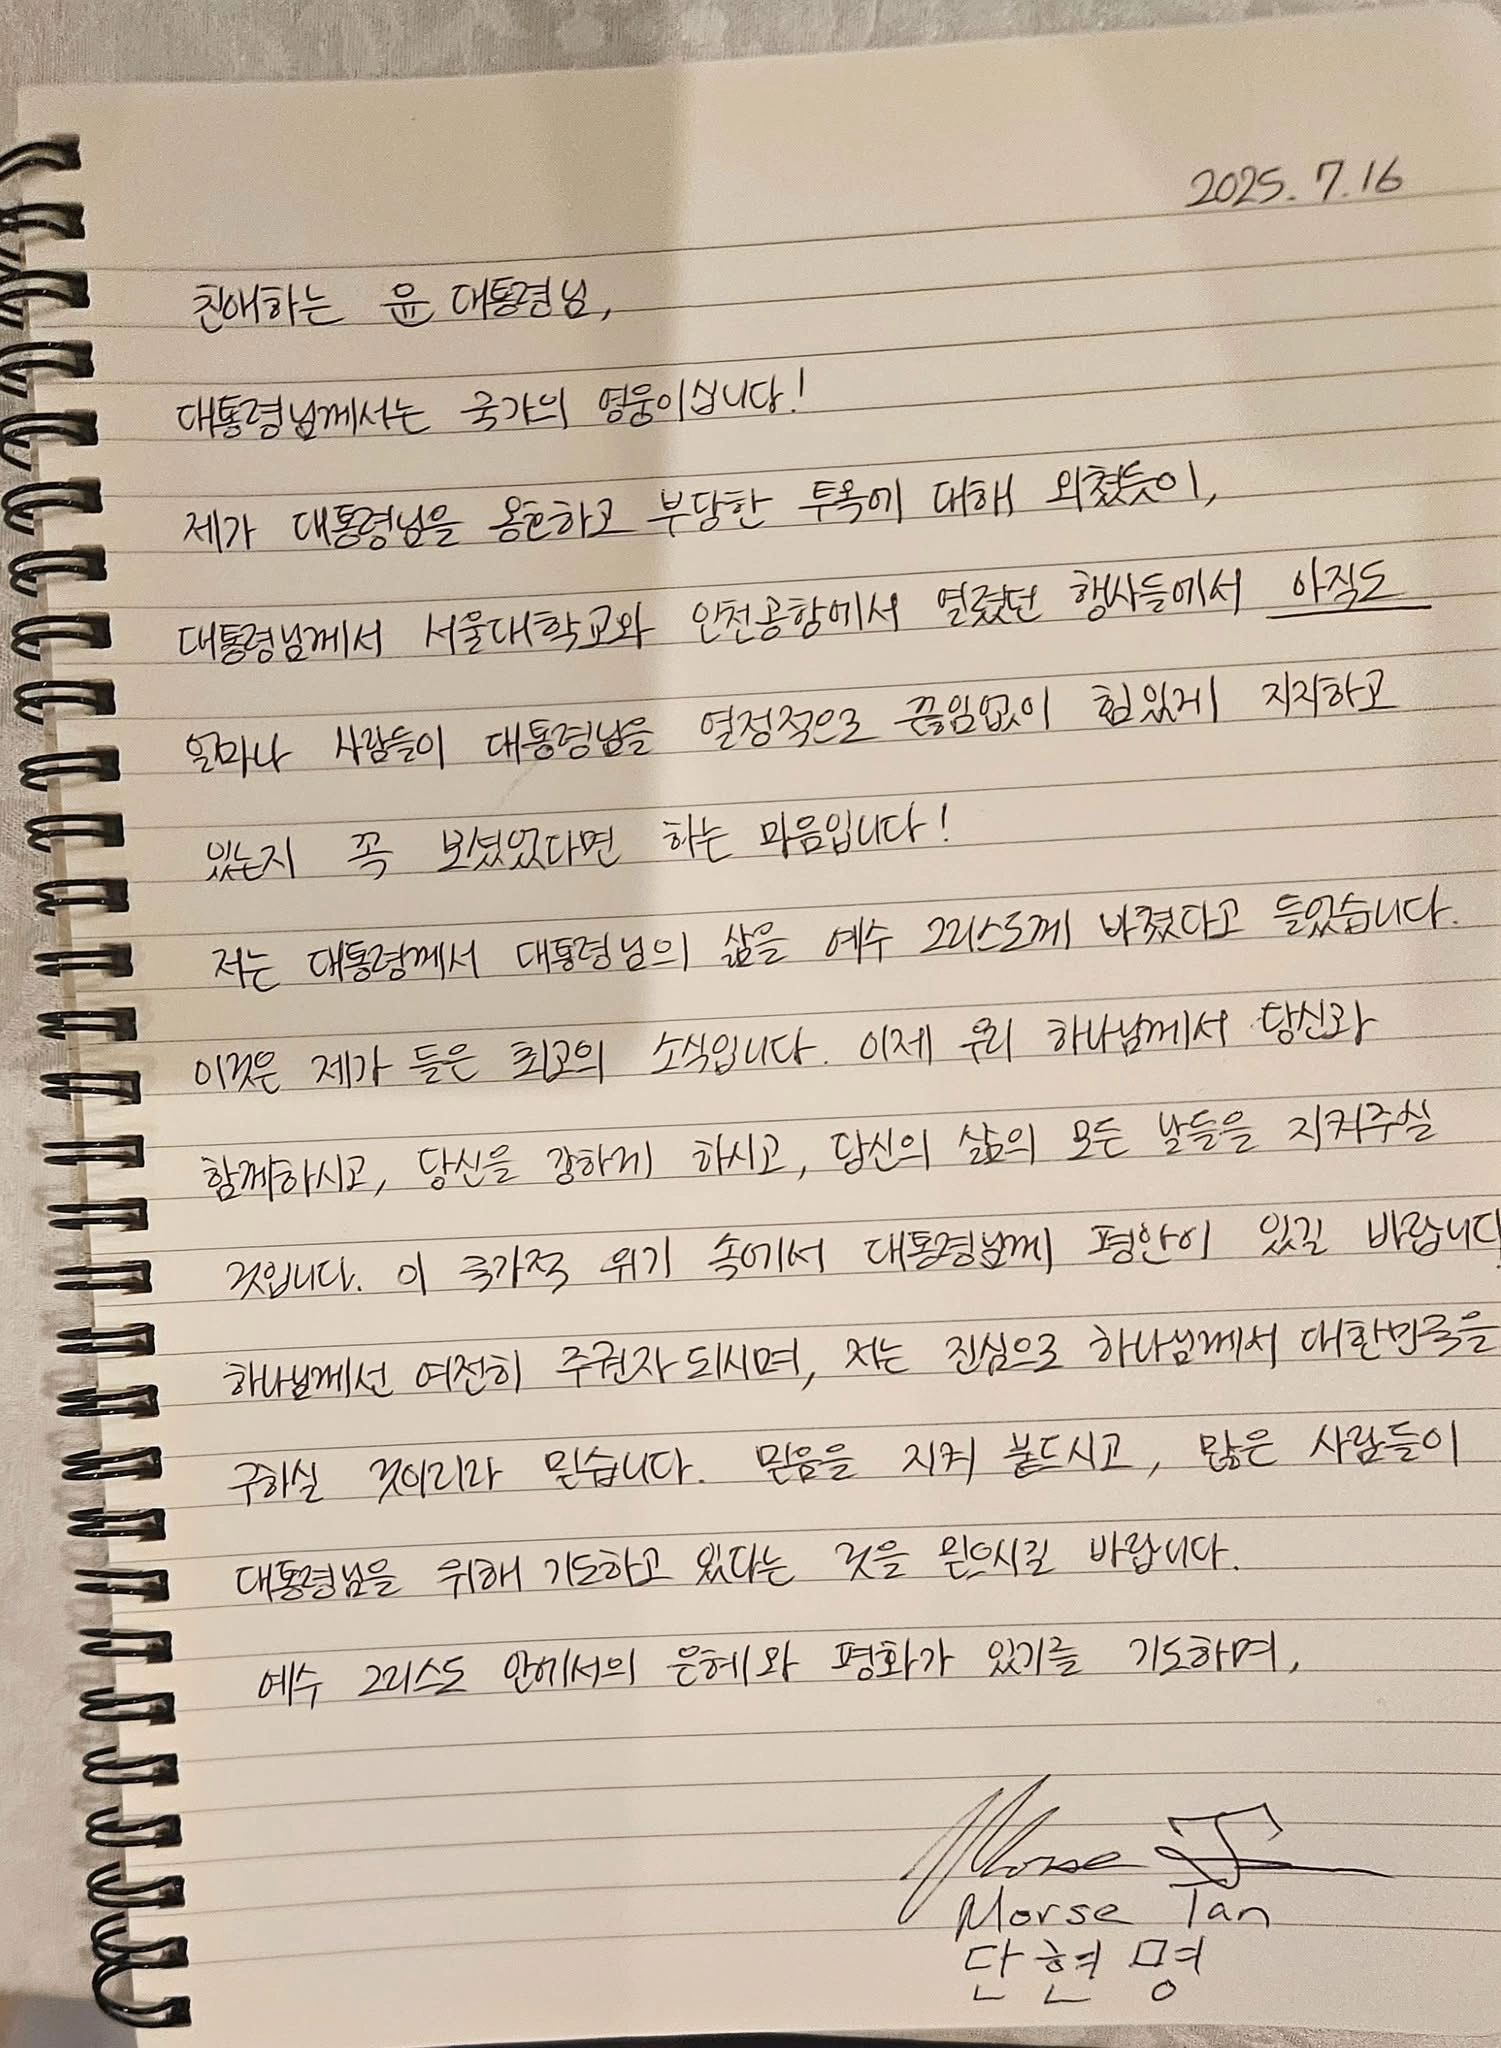 2025. 7. 16
친애하는 윤 대통령님,
대통령님께서는 국가의 영웅이십니다!
제가 대통령님을 옹호하고 부당한 투옥에 대해 외쳤듯이,
대통령님께서 서울대학교와 인천공항에서 열렸던 행사들에서 아직도
얼마나 사람들이 대통령님을 열정적으로 끊임없이 힘있게 지지하고
있는지 꼭 보셨었다면 하는 마음입니다!
저는 대통령께서 대통령님의 삶을 예수 그리스도께 바쳤다고 들었습니다.
이것은 제가 들은 최고의 소식입니다. 이제 우리 하나님께서 당신과
함께하시고, 당신을 강하게 하시고, 당신의 삶의 모든 날들을 지켜주실
것입니다. 이 국가적 위기 속에서 대통령님께 평안이 있길 바랍니다.
하나님께선 여전히 주권자 되시며, 저는 진심으로 하나님께서 대한민국을
구하실 것이리라 믿습니다. 믿음을 지켜 붙드시고, 많은 사람들이
대통령님을 위해 기도하고 있다는 것을 믿으시길 바랍니다.
예수 그리스도 안에서의 은혜와 평화가 있기를 기도하며,
Morse T
Morse Tan
단현명